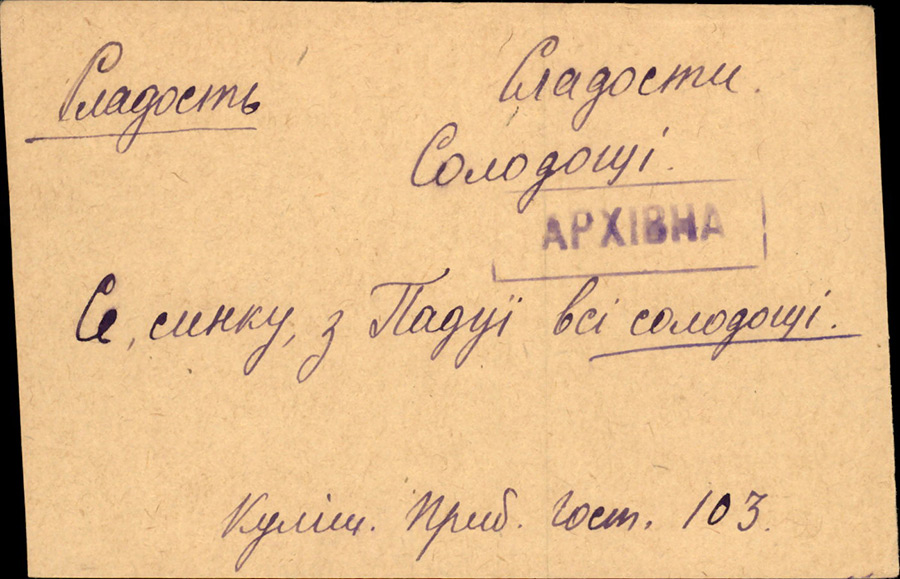 Сладость
Сладости.
Солодощі.
АРХІВНА
Се, синку, з Падуї всі солодощі.
Куліш. Приб. гост. 103.